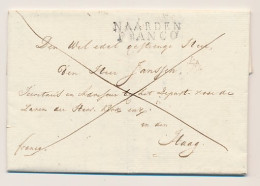 NAARDEN
FRANCO
Den Wel edel gestrenge Heer
den Heer Janssen
Secretaris en Adviseur bij het Depart. voor de
Zaken der
en den
Haag
franco